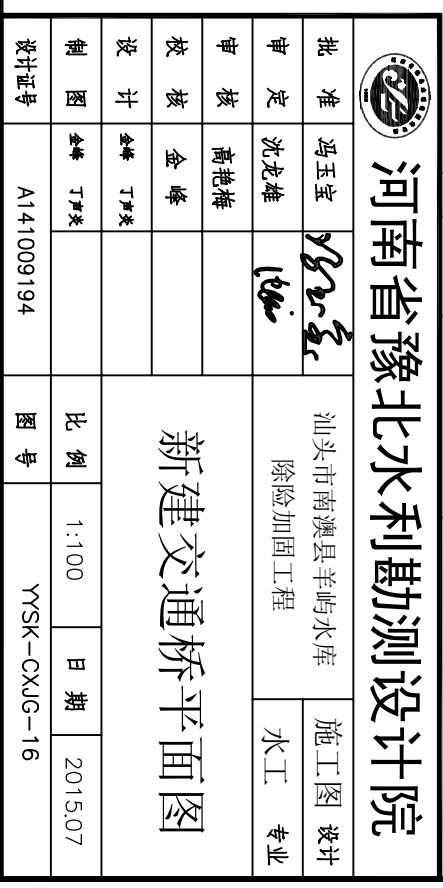 河南省豫北水利勘测设计院
批准 冯玉宝 汕头市南澳县羊屿水库 施工图 设计
审定 沈龙雄 除险加固工程 水工 专业
审核 高艳梅
校核 金峰 新建交通桥平面图
设计 金峰 丁声炎
制图 金峰 丁声炎 比例 1:100 日期 2015.07
设计证号 A141009194 图号 YYSK-CXJG-16